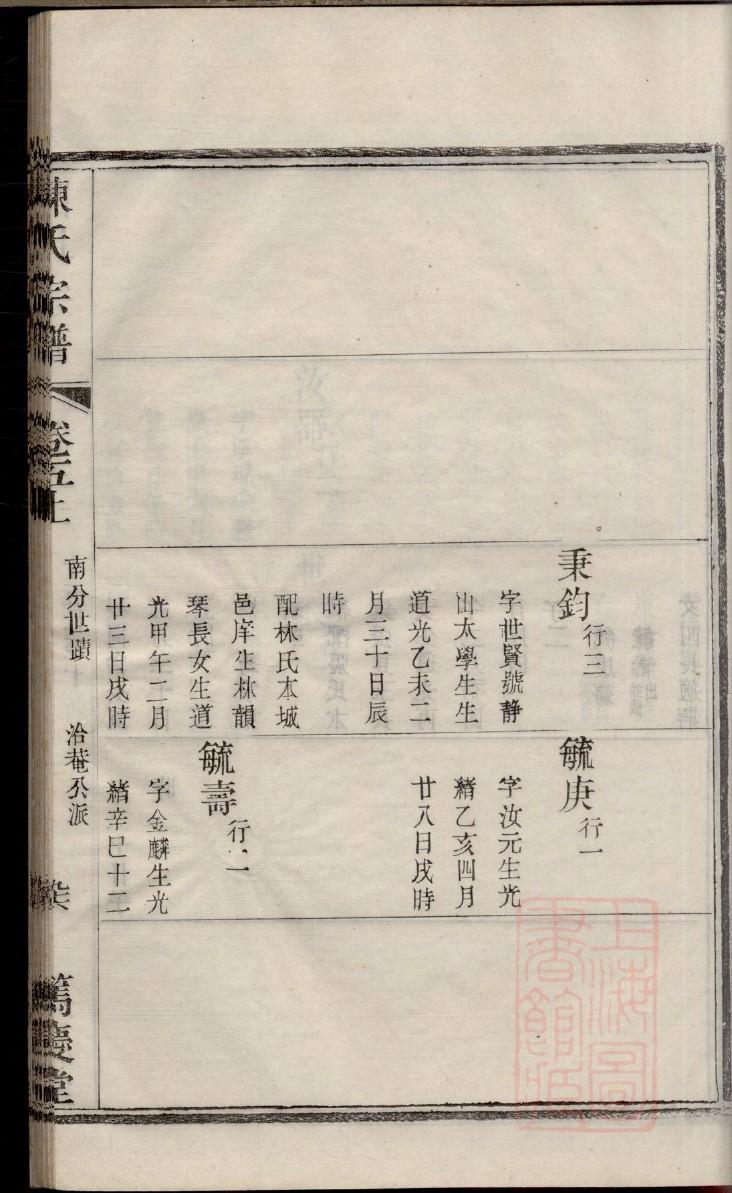 秉鈞行三
字世賢號靜
山太學生生
道光乙未二
月三十日辰
時
配林氏本城
邑庠生林韻
琴長女生道
光甲午二月
廿三日戌時
毓庚行一
字汝元生光
緒乙亥四月
廿八日戌時
毓壽行二
字金麟生光
緒辛巳十二
陳氏宗譜
卷五上
南分世蹟
治菴公派
篤慶堂
上海圖
書館藏